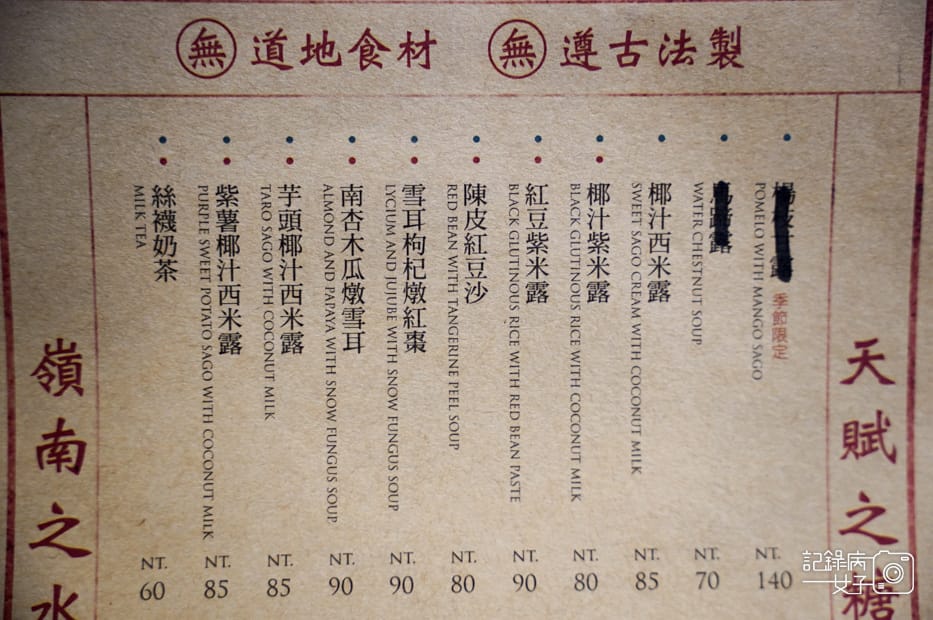 無 道地食材 無 遵古法製
天賦之糖
楊枝甘露 季節限定
POMELO WITH MANGO SAGO
NT.
140
馬蹄露
WATER CHESTNUT SOUP
NT.
70
椰汁西米露
SWEET SAGO CREAM WITH COCONUT MILK
NT.
85
椰汁紫米露
BLACK GLUTINOUS RICE WITH COCONUT MILK
NT.
80
紅豆紫米露
BLACK GLUTINOUS RICE WITH RED BEAN PASTE
NT.
90
陳皮紅豆沙
RED BEAN WITH TANGERINE PEEL SOUP
NT.
80
雪耳枸杞燉紅棗
LYCIUM AND JUJUBE WITH SNOW FUNGUS SOUP
NT.
90
南杏木瓜燉雪耳
ALMOND AND PAPAYA WITH SNOW FUNGUS SOUP
NT.
90
芋頭椰汁西米露
TARO SAGO WITH COCONUT MILK
NT.
85
紫薯椰汁西米露
PURPLE SWEET POTATO SAGO WITH COCONUT MILK
NT.
85
絲襪奶茶
MILK TEA
NT.
60
嶺南之水
記錄病女子